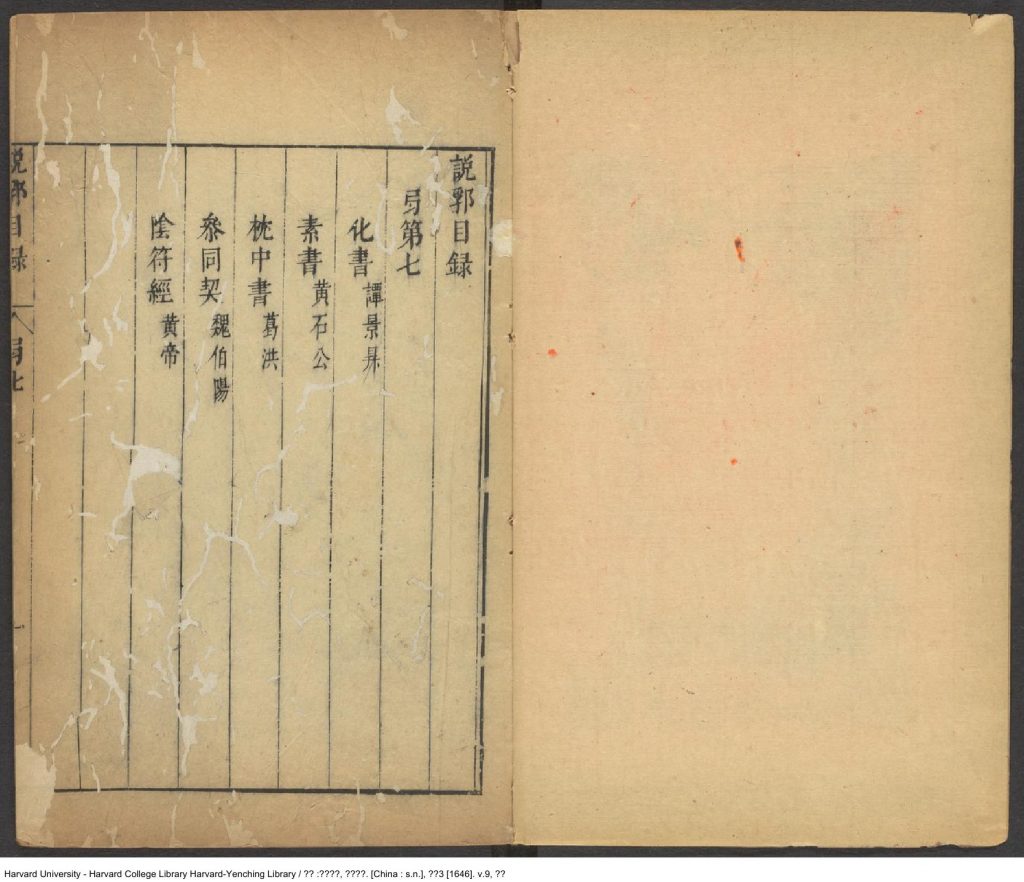 說郛目録
弓第七
化書 譚景昇
素書 黃石公
枕中書 葛洪
參同契 魏伯陽
陰符經 黃帝
說郛目録 弓七
Harvard University - Harvard College Library Harvard-Yenching Library / ?? :????, ????. [China : s.n.], ??3 [1646]. v.9, ??